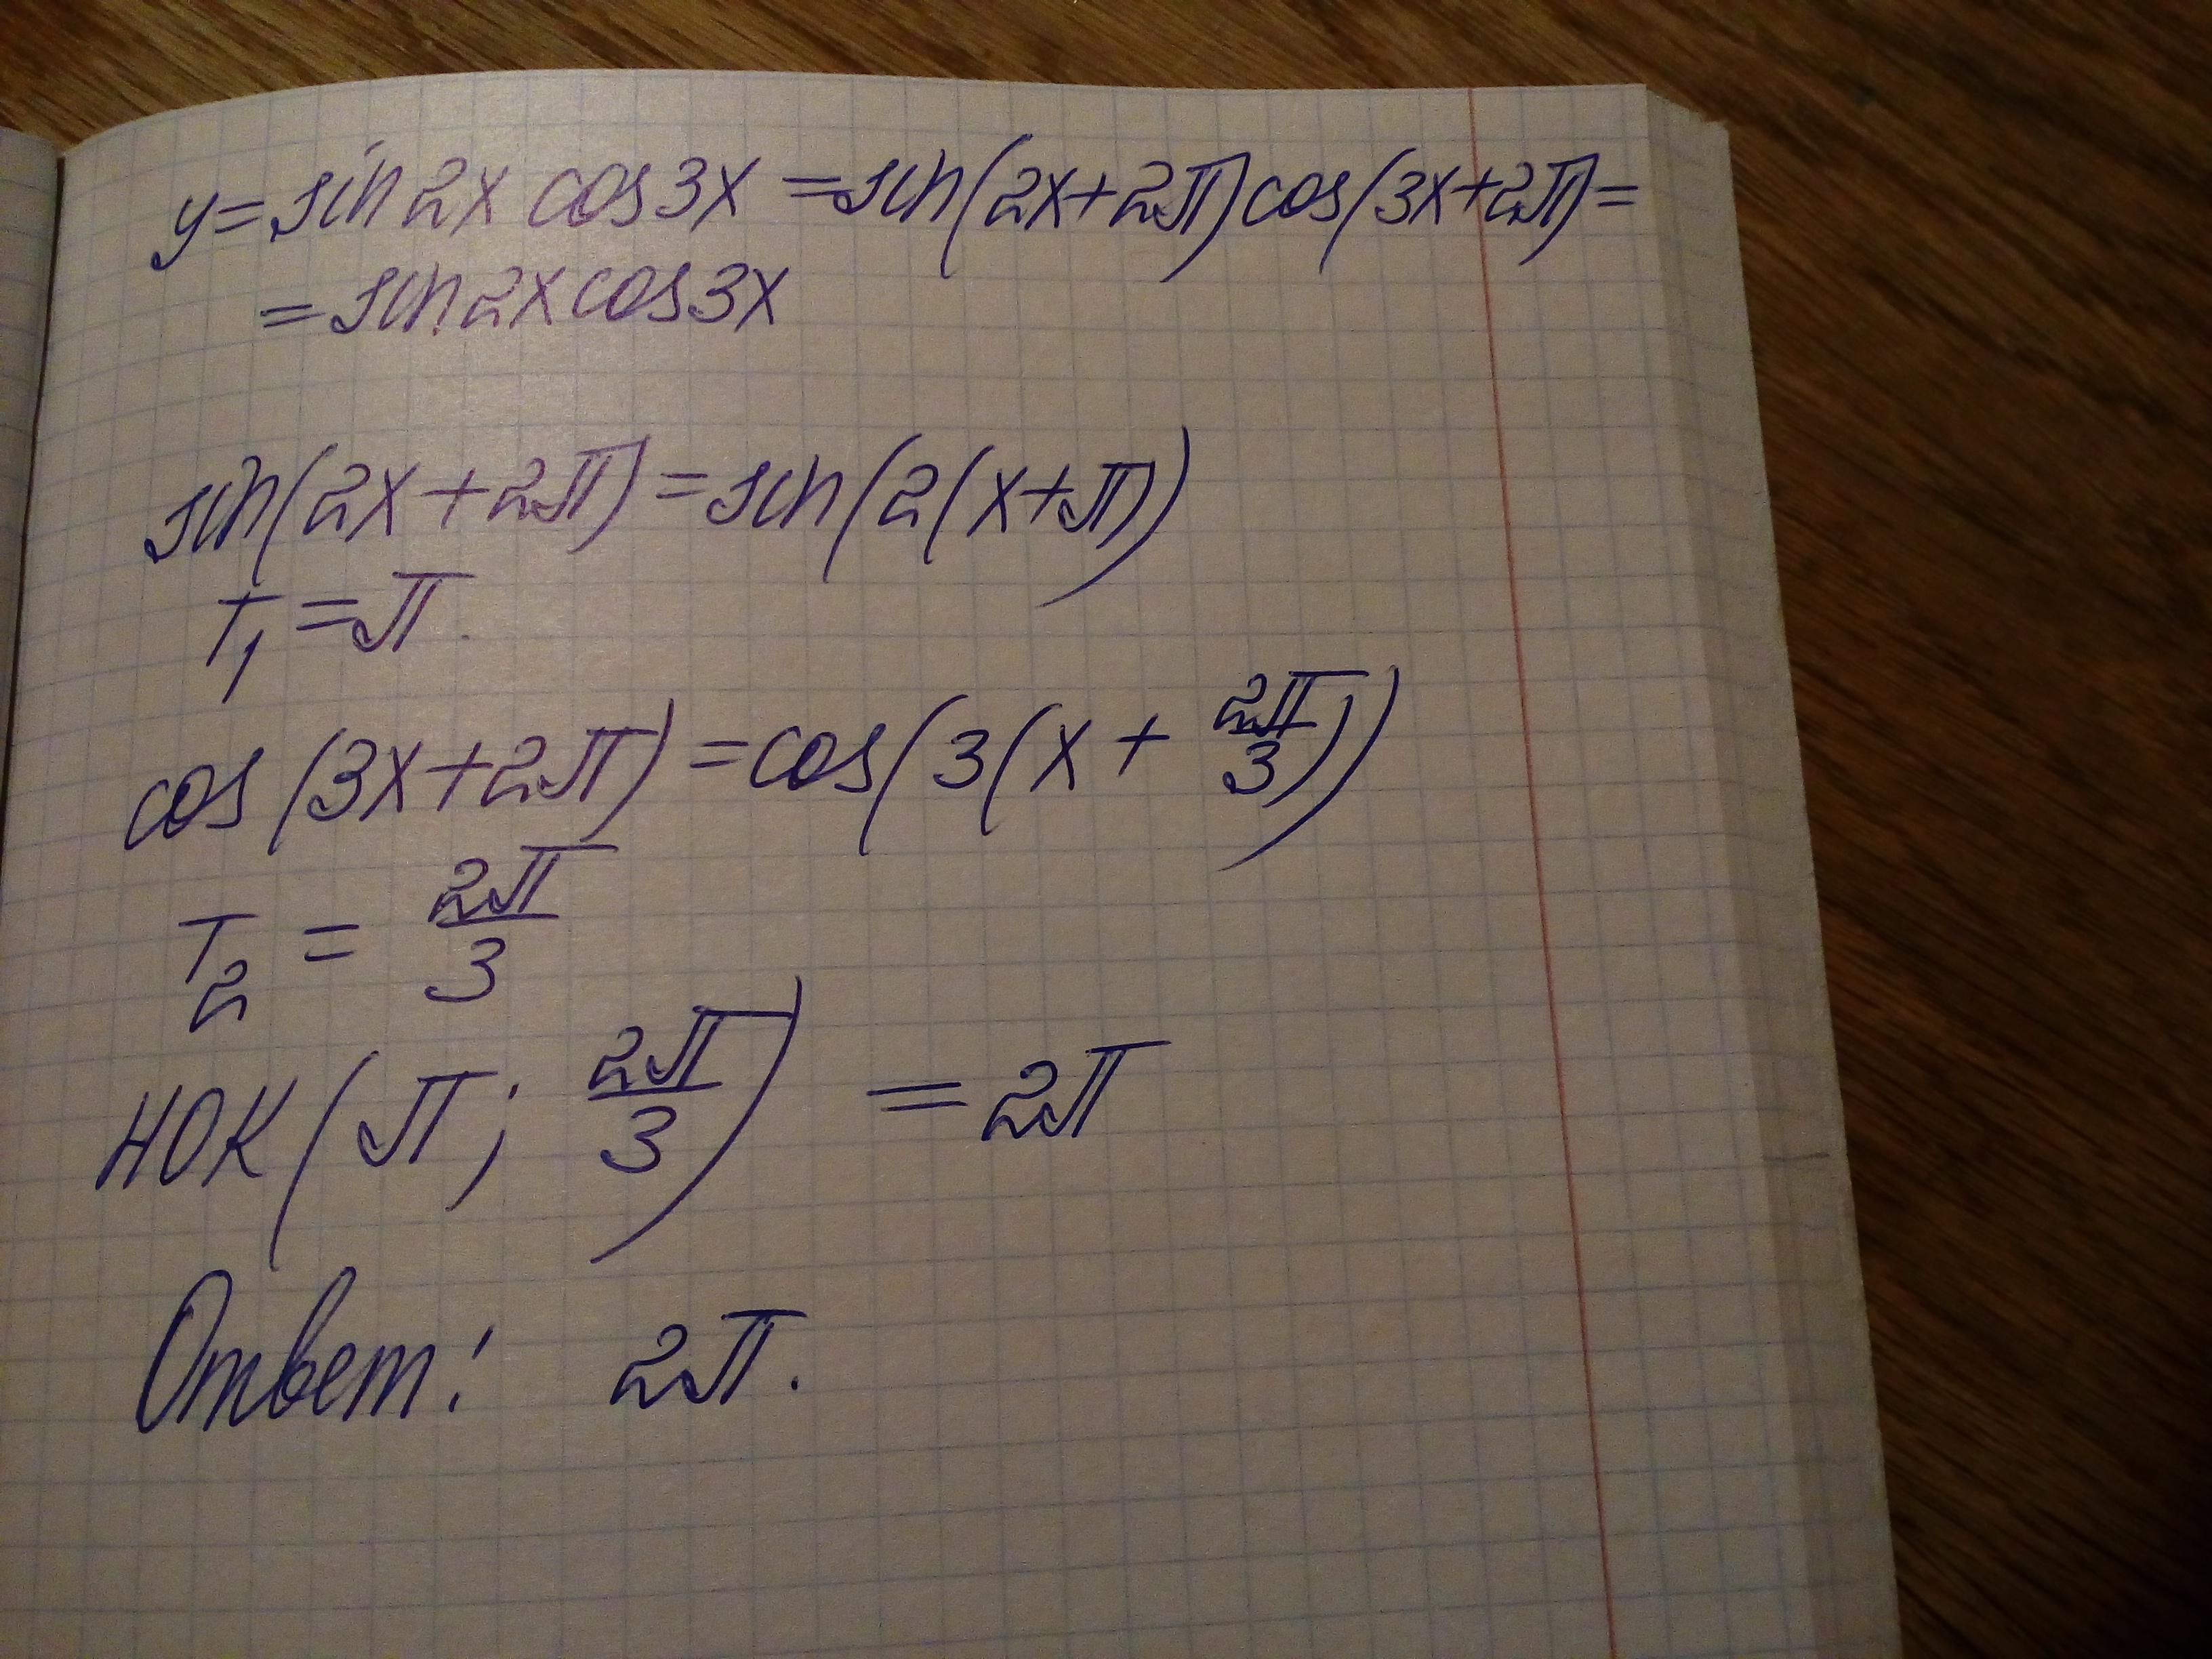 y = sin 2x cos 3x = sin(2x+2π) cos(3x+2π) =
= sin 2x cos 3x
sin(2x+2π) = sin(2(x+π))
T₁ = π.
cos(3x+2π) = cos(3(x + 2π/3))
T₂ = 2π/3
НОК(π; 2π/3) = 2π
Ответ: 2π.